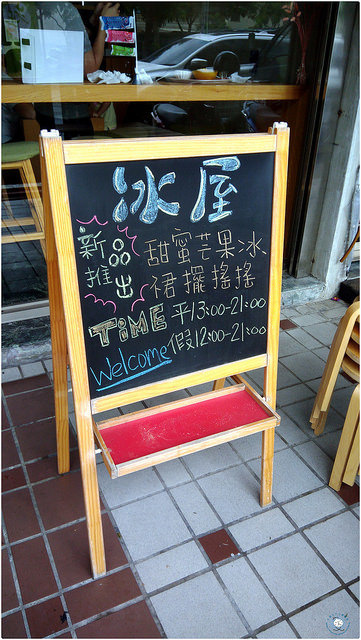 冰屋
新品 甜蜜芒果冰、
推出 裙擺搖搖
TiME 平13:00-21:00
Welcome 假12:00-21:00